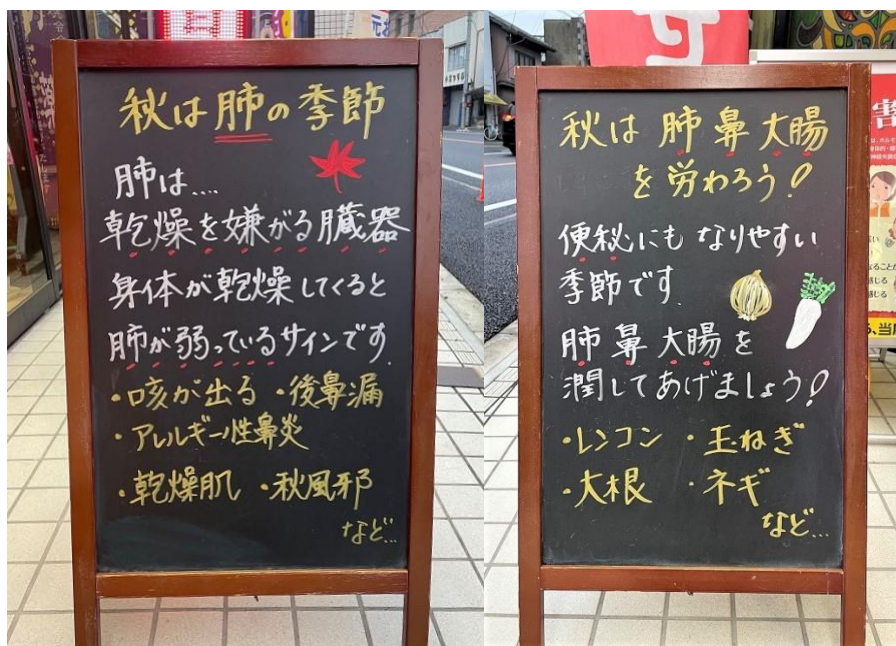 秋は肺の季節
肺は....
乾燥を嫌がる臓器
身体が乾燥してくると
肺が弱っているサインです.
・咳が出る ・後鼻漏
・アレルギー性鼻炎
・乾燥肌 ・秋風邪
など...
秋は肺鼻大腸
を労わろう!
便秘にもなりやすい
季節です.
肺鼻大腸を
潤してあげましょう!
・レンコン ・玉ねぎ
・大根 ・ネギ
など...